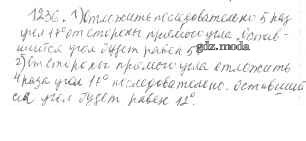 1236. 1) Отложить последовательно 5 раз
угол 17° от стороны прямого угла. Остав-
шийся угол будет равен 5°
gdz.moda
2) От стороны прямого угла отложить
4 раза угол 17° последовательно. Оставший
ся угол будет равен 12°.